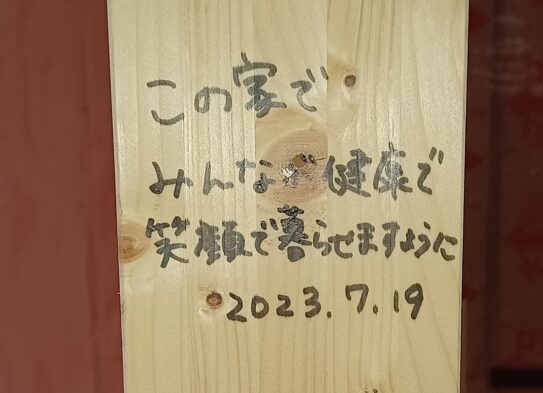 この家で
みんなが健康で
笑顔で暮らせますように
2023.7.19